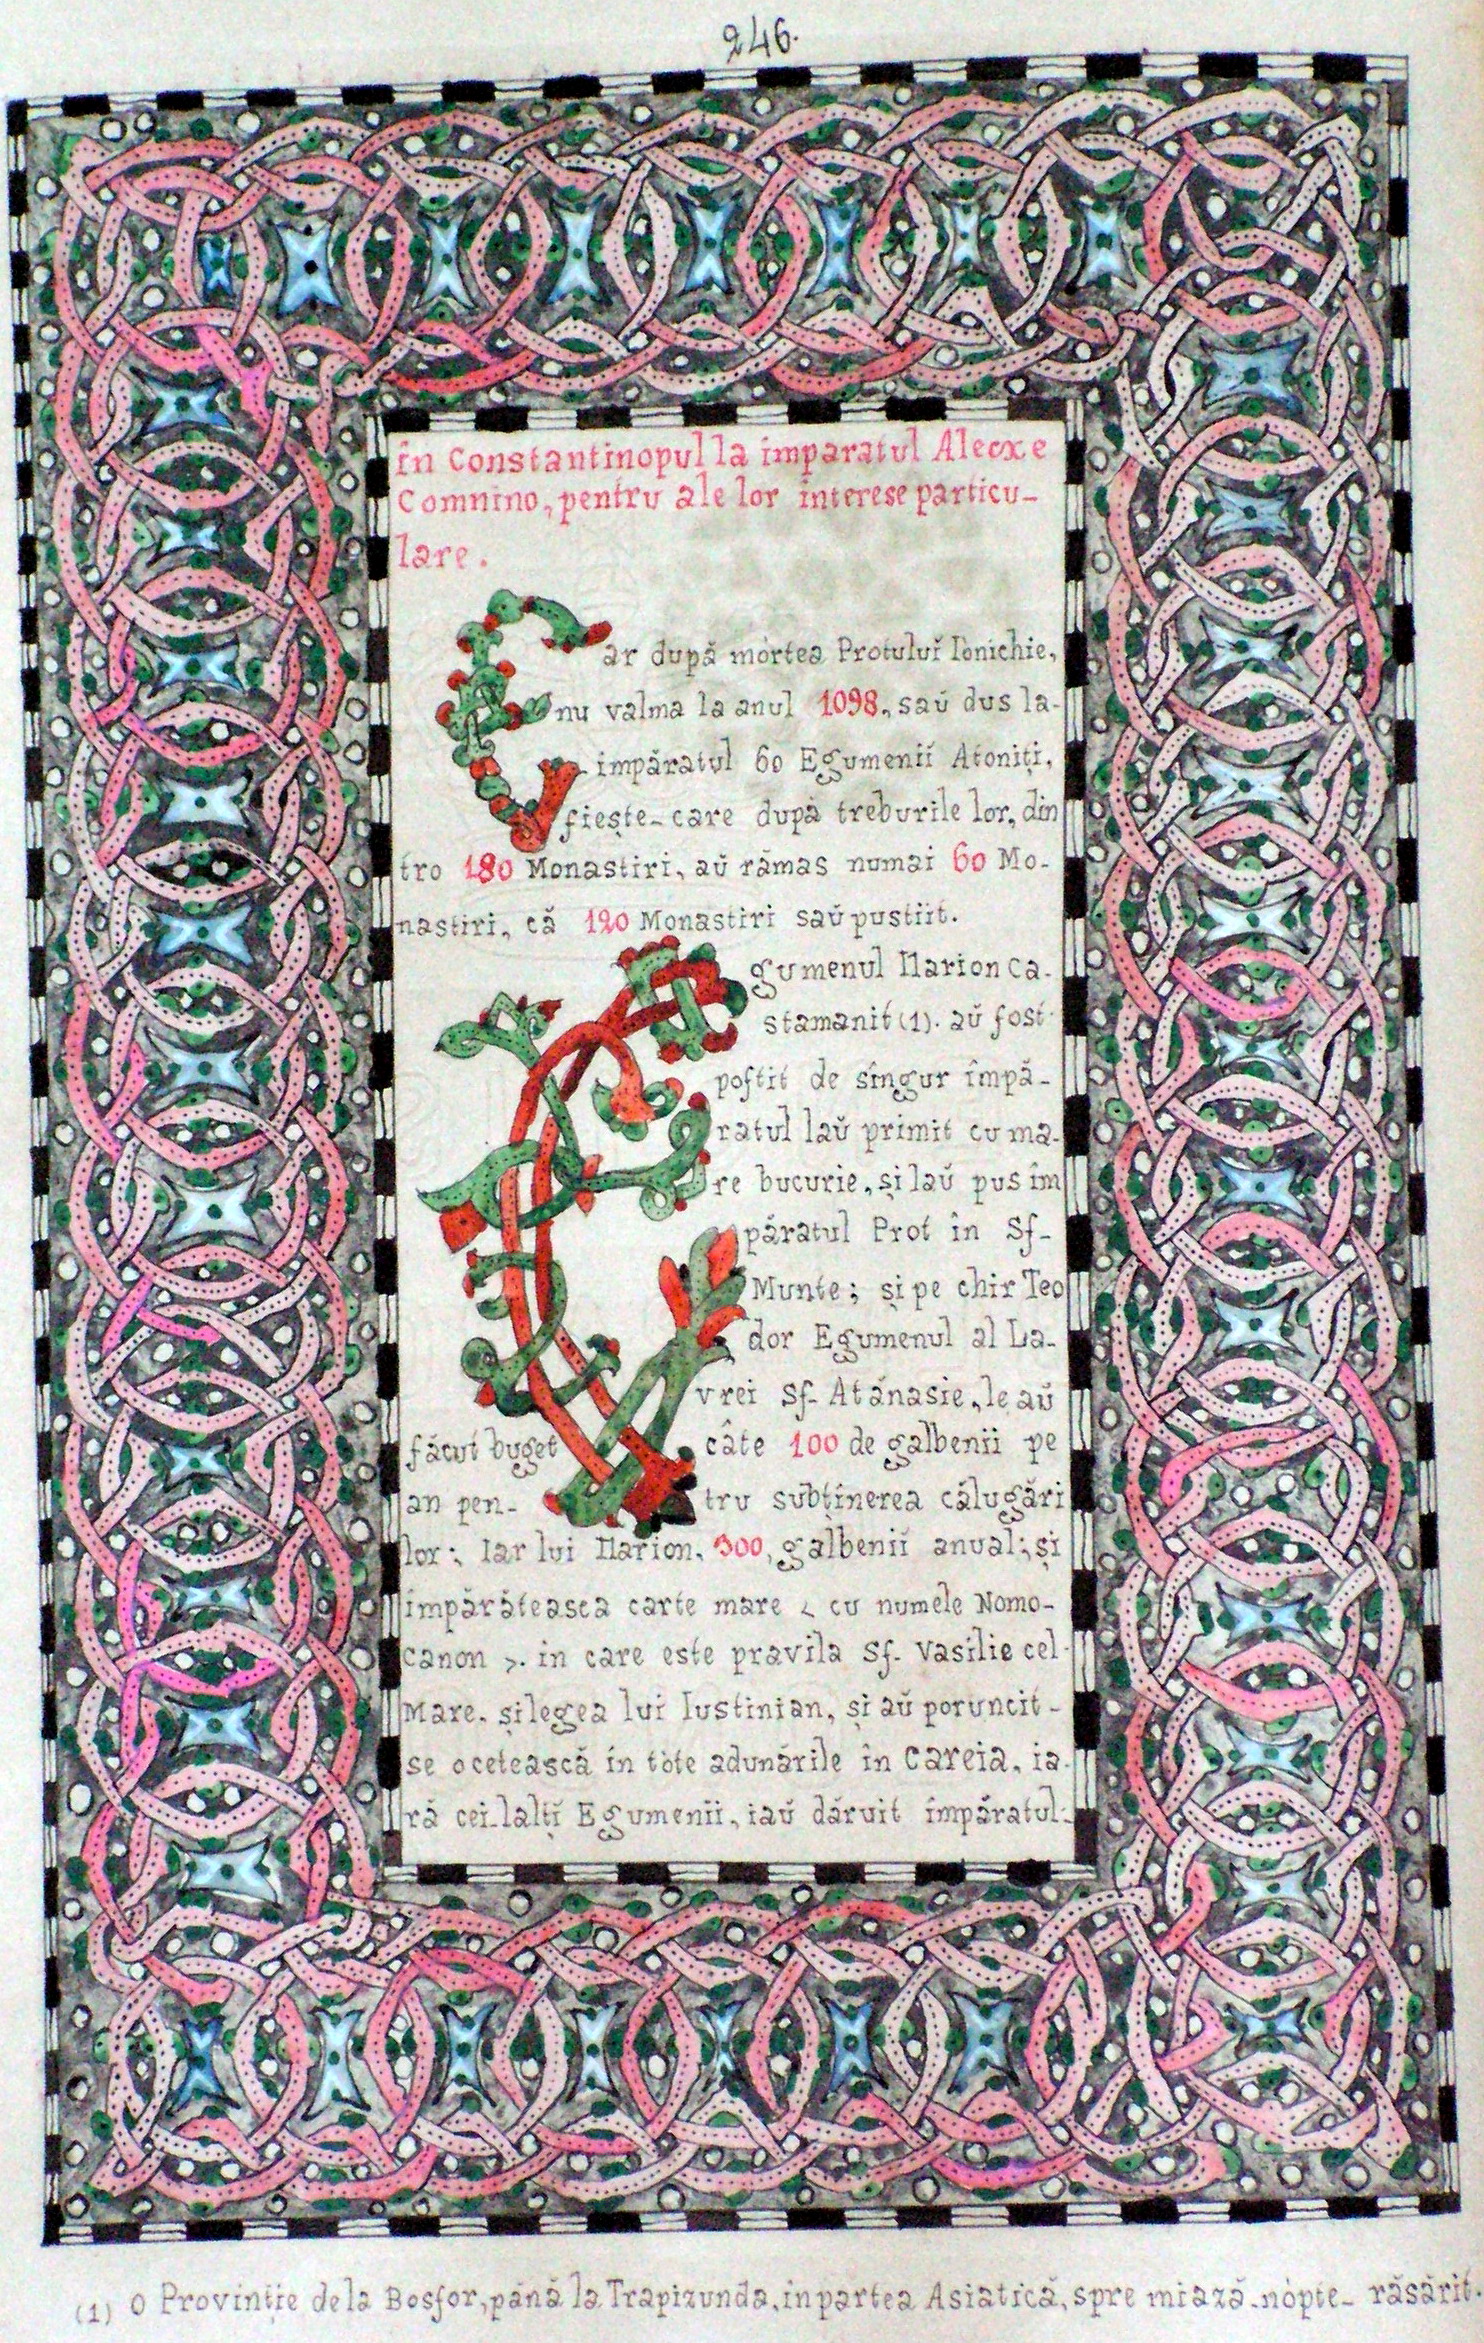 246.
în Constantinopul la imparatul Alecxe
Comnino, pentru ale lor interese particu-
lare.
Iar după mòrtea Protuluĭ Ionichie,
nu valma la anul 1098, saŭ dus la-
împăratul 60 Egumenii Atoniți,
fiește-care după treburile lor, din
tro 180 Monastiri, aŭ rămas numai 60 Mo-
nastiri, că 120 Monastiri saŭ pustiit.
Egumenul Ilarion Ca-
stamanit (1). aŭ fost
poftit de sîngur împă-
ratul laŭ primit cu ma-
re bucurie, și laŭ pus îm
păratul Prot în Sf-
Munte; și pe chir Teo
dor Egumenul al La-
vrei Sf- Atánasie, le aŭ
făcut buget câte 100 de galbenii pe
an pen- tru subținerea călugări
lor; Iar lui Ilarion, 300, galbenii anual; și
împărăteasca carte mare < cu numele Nomo-
canon >. in care este pravila Sf- Vasilie cel-
Mare, și legea lui Iustinian, și aŭ poruncit-
se o cetească în tòte adunările în Careia, ia-
ră cei-lalțĭ Egumenii, iaŭ dăruit împăratul:
(1) O Provinție de la Bosfor, până la Trapizunda, in partea Asiatică, spre miază-nòpte- răsărit.